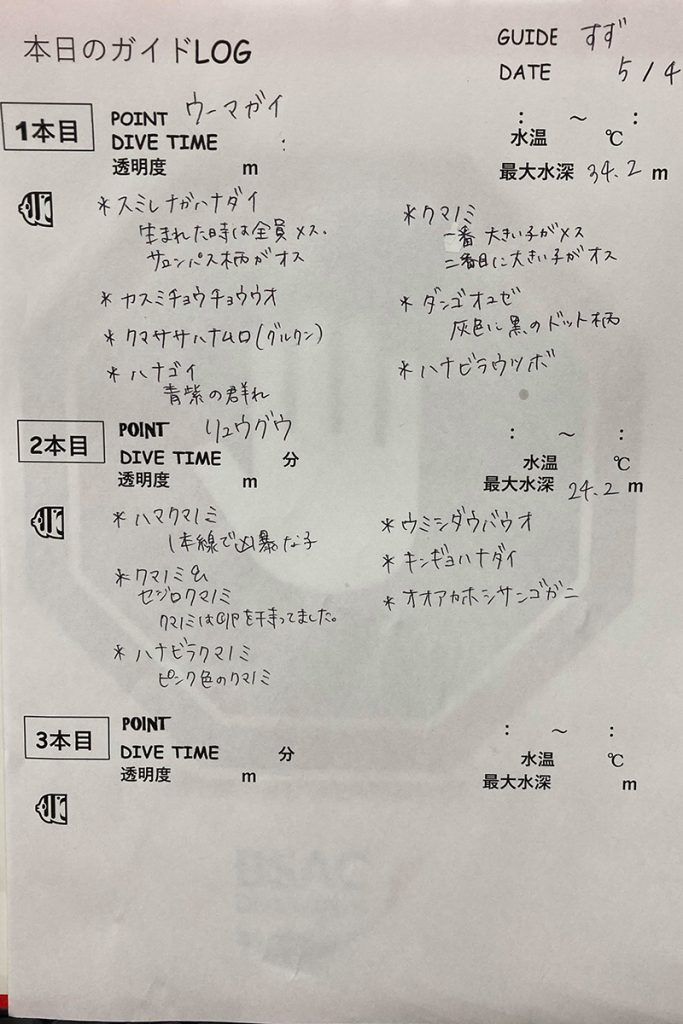 本日のガイドLOG
GUIDE すず
DATE 5/4
1本目
POINT ウーマガイ
DIVE TIME :
透明度 m
: ~ :
水温 ℃
最大水深 34.2 m
*スミレナガハナダイ
生まれた時は全員メス.
サロンパス柄がオス
*カスミチョウチョウウオ
*クマササハナムロ(グルクン)
*ハナゴイ
青紫の群れ
*クマノミ
一番大きい子がメス
二番目に大きい子がオス
*ダンゴオコゼ
灰色に黒のドット柄
*ハナビラウツボ
2本目
POINT リュウグウ
DIVE TIME 分
透明度 m
: ~ :
水温 ℃
最大水深 24.2 m
*ハマクマノミ
1本線で凶暴な子
*クマノミ&
セジロクマノミ
クマノミは卵を持ってました。
*ハナビラクマノミ
ピンク色のクマノミ
*ウミシダウバウオ
*キンギョハナダイ
*オオアカホシサンゴガニ
3本目
POINT
DIVE TIME 分
透明度 m
: ~ :
水温 ℃
最大水深 m
BSAC